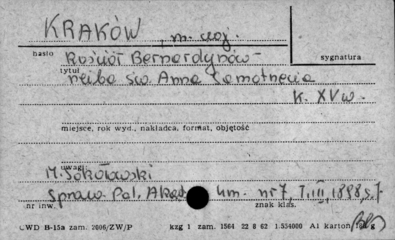 KRAKÓW, m. woj.
hasło Kościół Bernardynów- sygnatura
tytuł rzeźba św. Anna Samotrzecia
K. XV w.
miejsce, rok wyd., nakładca, format, objętość
uwagi
M. Sokołowski
Spraw. Pol. Akad. Um. nr 7, T. III, 1888, s. 7
nr inw. znak klas.
CWD B-15a zam. 2006/ZW/P kzg 1 zam. 1564 22 8 62 1.554000 A1 karton g